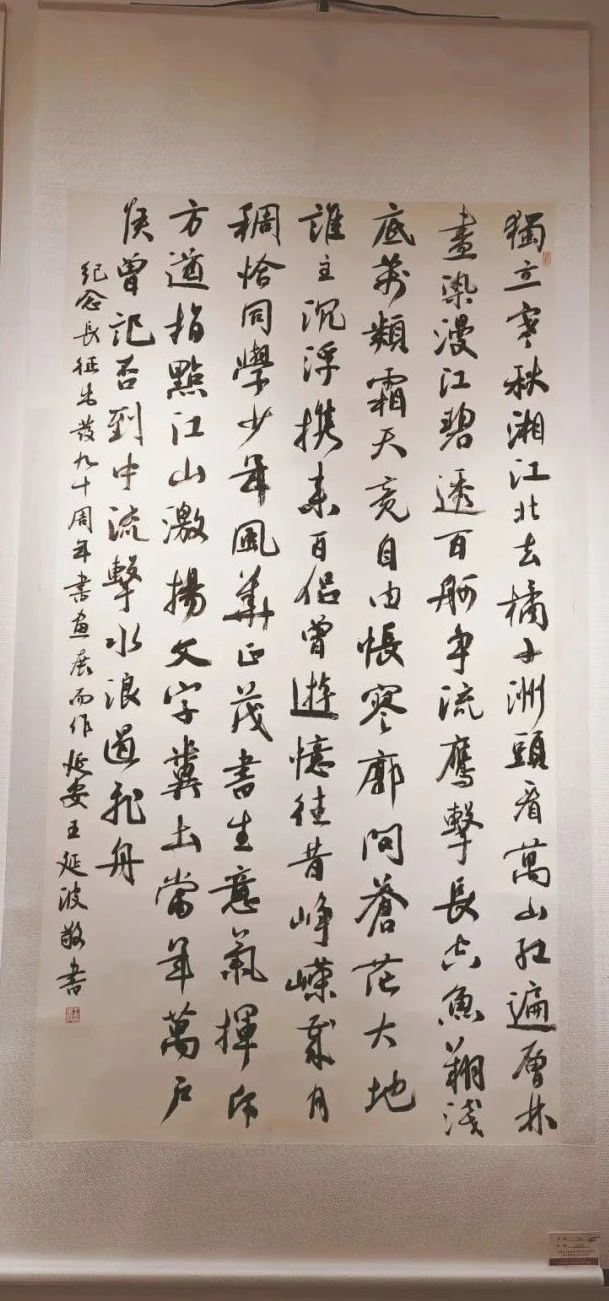 獨立寒秋湘江北去橘子洲頭看萬山红遍層林
盡染漫江碧透百舸争流鷹擊長空魚翔淺
底萬類霜天竞自由悵寥廓問蒼茫大地
誰主沉浮携来百侣曾遊憶往昔峥嶸歲月
稠恰同學少年風華正茂書生意氣揮斥
方遒指點江山激揚文字糞土當年萬户
侯曾記否到中流擊水浪遏飛舟
纪念長征出發九十周年書画展而作延安王延波敬書